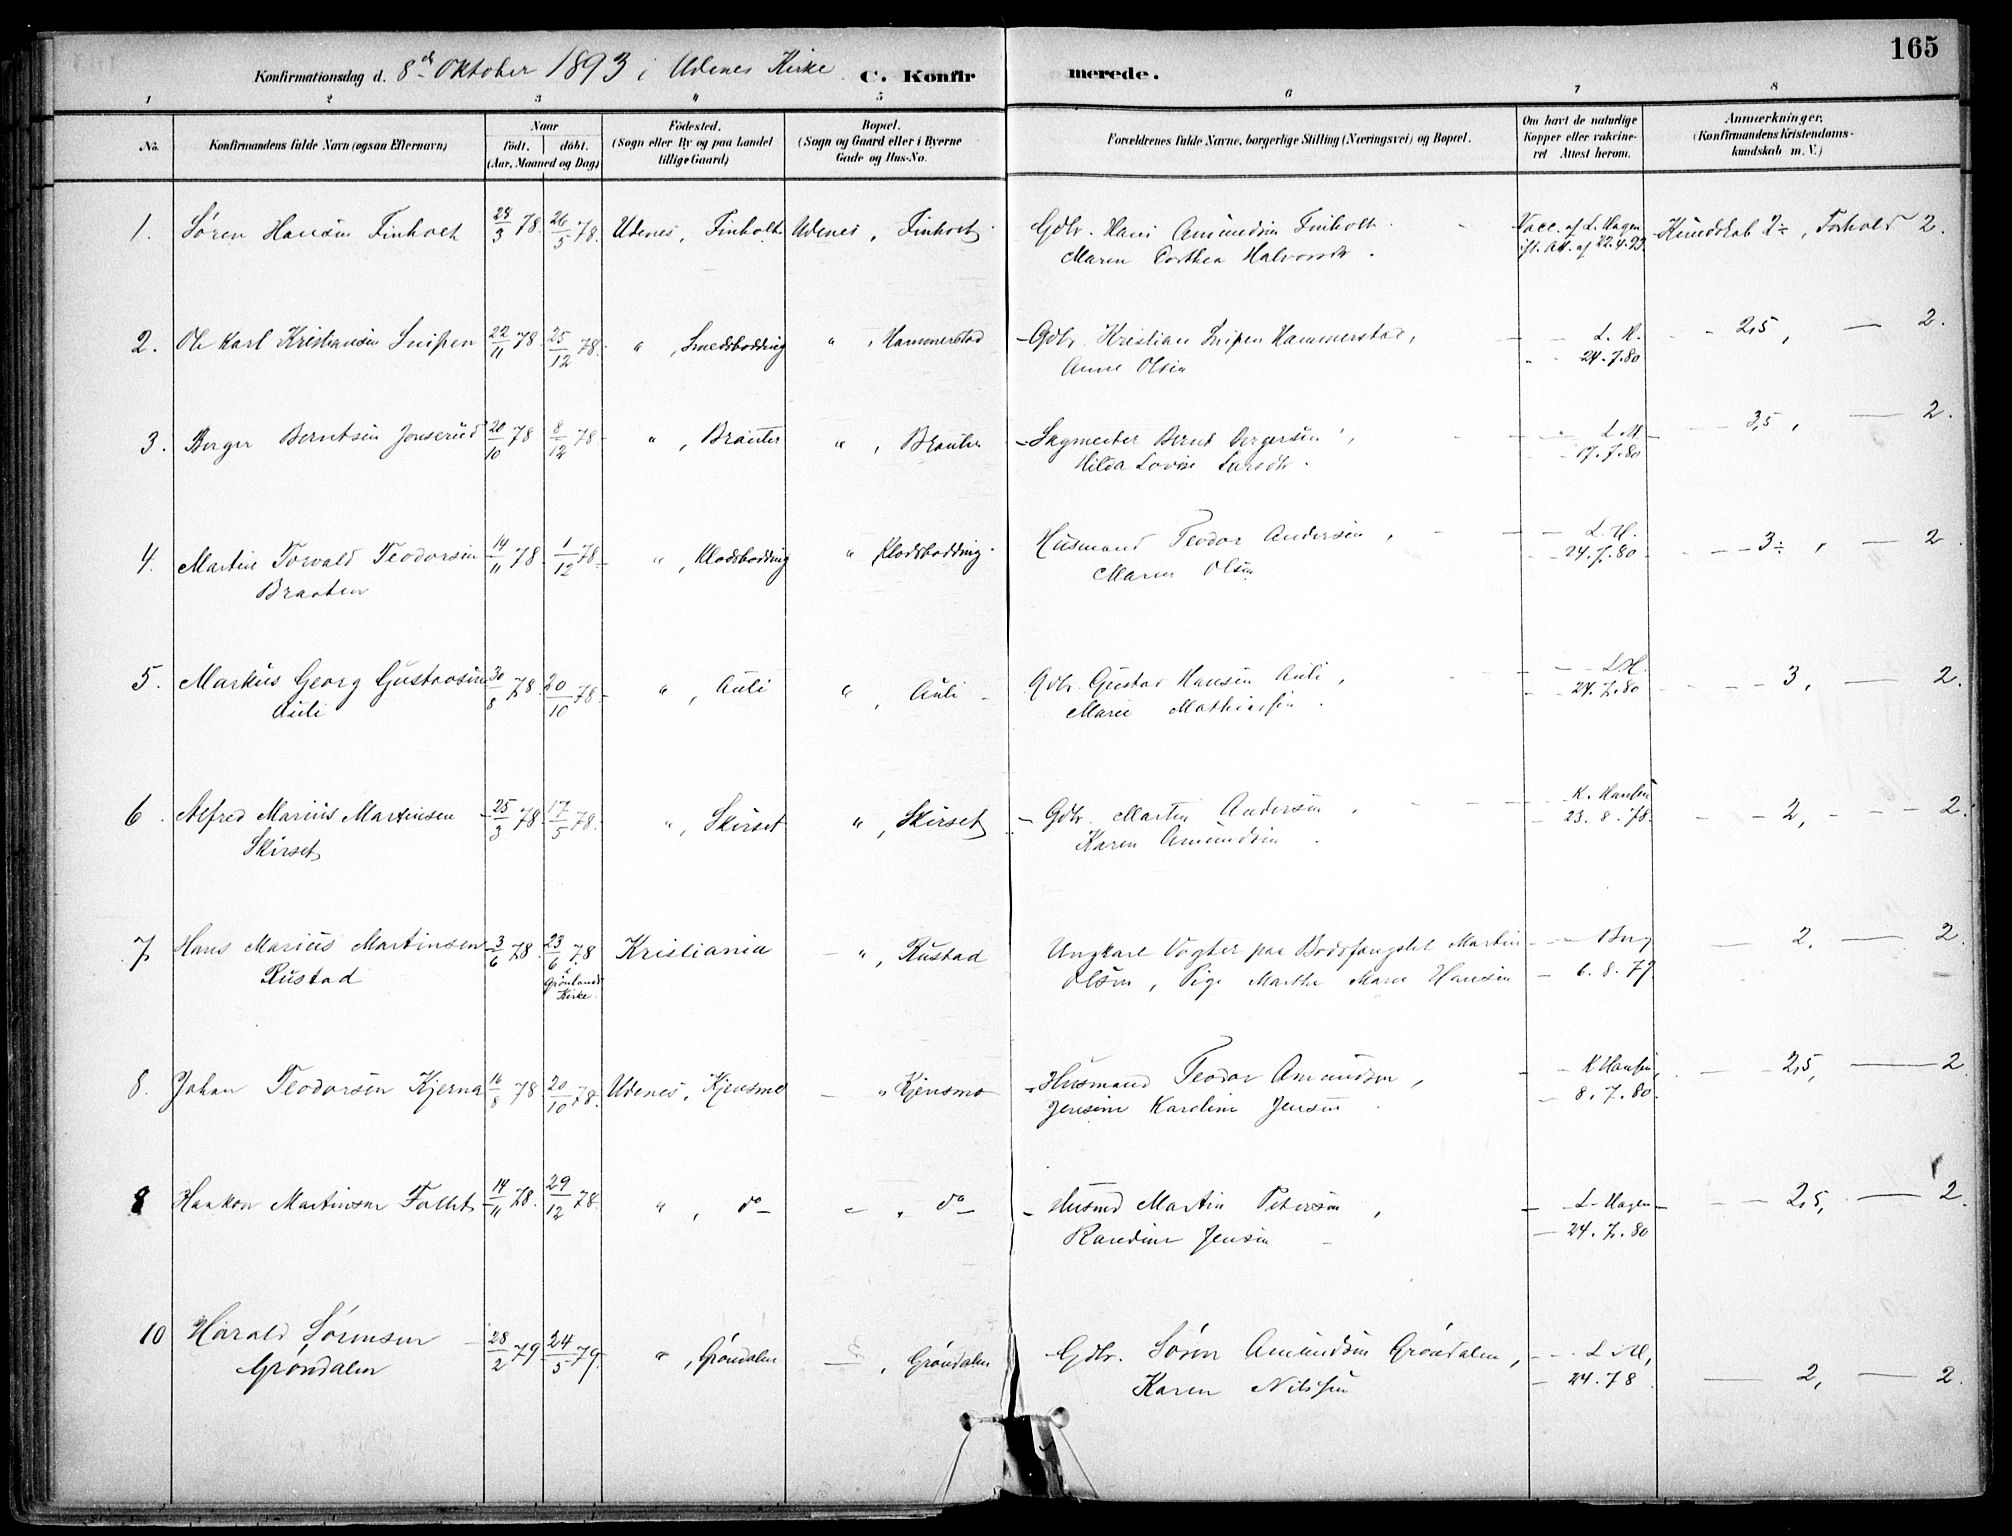 165
Konfirmationsdag d. 8de Oktober 1893 i Udenes Kirke C. Konfirmerede.
1 2 3 4 5 6 7 8
No. Konfirmandens fulde Navn (ogsaa Efternavn) Naar født. døbt. (Aar, Maaned og Dag) Födested. (Sogn eller By og paa Landet tillige Gaard) Bopæl. (Sogn og Gaard eller i Byerne Gade og Hus-No. Forældrenes fulde Navne, borgerlige Stilling (Næringsvei) og Bopæl. Om havt de naturlige Kopper eller vakcineret Attest herom. Anmærkninger. (Konfirmandens Kristendomskundskab m. V.)
1. Søren Hansen Finholt 28/3 78. 26/5 78. Udenes, Finholt Udenes, Finholt Gdbr. Hans Amundsen Finholt Vacc. af L. Hagen Kundskab 2÷, Forhold 2.
Maren Dorthea Halvorsdt. ifl. Att. af 22.4.93
2. Ole Karl Kristiansen Snipen 22/11 78. 25/12 78. " , Smedsbodding " , Hammerstad - Gdbr. Kristian Snipen Hammerstad, L. H. 2,5, — 2.
Anne Olsen 24.7.80
3. Berger Berntsen Jonserud 20/10 78 8/12 78 " , Brauter " , Brauter - Sagmester Bernt Bergersen, L. H. 3,5, — 2.
Hilda Lovise Larsdt. 17.7.80
4. Martin Torvald Teodorsen 14/11 78 1/12 78. " , Klodsbodding " Klodsbodding. Husmand Teodor Andersen, L. H. 3÷, — 2
Braaten Maren Olsen 24.7.80
5. Markus Georg Gustavsen 30/8 78 20/10 78 " , Auli " , Auli Gdbr. Gustav Hansen Auli, L. H. 3, — 2.
Auli Maren Mathiesen. 24.7.80
6. Alfred Marius Martinsen 25/3 78. 17/5 78. " , Skirset " , Skirset - Gdbr. Martin Andersen, K. Hansen 2, 2.
Skirset Karen Amundsen 23.8.78.
7. Hans Marius Martinsen 3/6 78. 23/6 78 Kristiania - " , Rustad Ungkarl Vogter paa Bodsfængslet Martin Berg 2, — 2.
Rustad i Grønlands Kirke. Olsen, Pige Marthe Marie Hansen 6.8.79
8. Johan Teodorsen Kjerna 16/8 78. 20/10 78. Udenes, Kjensmo - " Kjensmo - Husmand Teodor Amundsen, K Hansen, 2,5, — 2
Jensine Karoline Jensen 8.7.80
8 Haakon Martinsen Follet 14/11 78. 29/12 78 " , do - " , do - Husmd Martin Petersen, L. Hagen 2,5, — 2
Randine Jensen 24.7.80
10 Harald Sørensen 28/2 79 24/5 79. " , Grøndalen , Grøndalen Gdbr. Søren Amundsen Grøndalen, L. H, 2, — 2.
Grøndalen Karen Nilssen 24.78